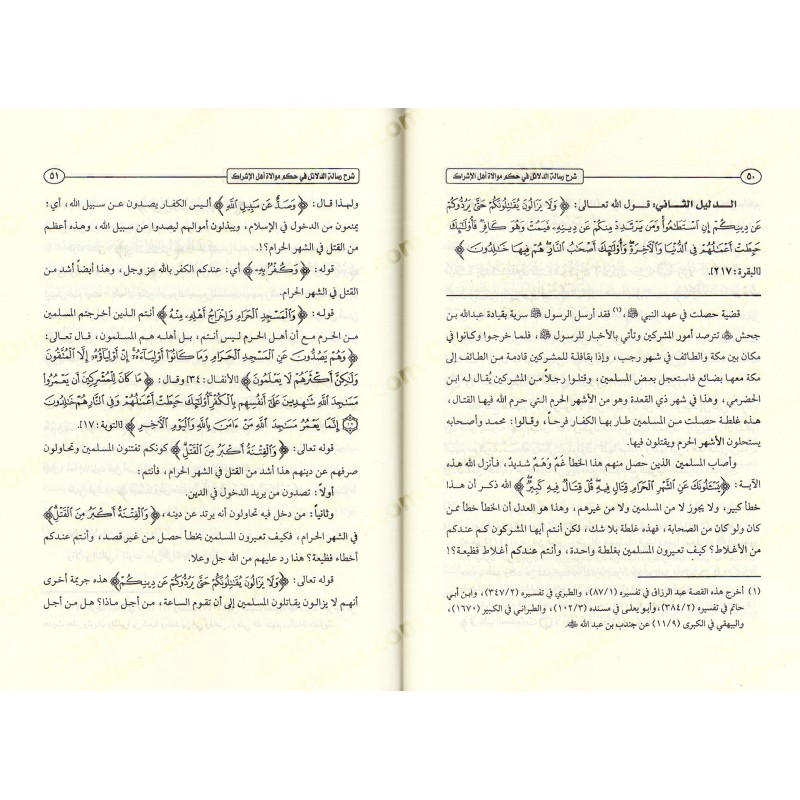 ٥٠
شرح رسالة الدلائل في حكم موالاة أهل الإشراك
الدليل الثاني: قول الله تعالى: ﴿وَلَا يَزَالُونَ يُقَاتِلُونَكُمْ حَتَّى يَرُدُّوكُمْ
عَن دِينِكُمْ إِنِ اسْتَطَاعُوا وَمَن يَرْتَدِدْ مِنكُمْ عَن دِينِهِ فَيَمُتْ وَهُوَ كَافِرٌ فَأُولَئِكَ
حَبِطَتْ أَعْمَالُهُمْ فِي الدُّنْيَا وَالْآخِرَةِ وَأُولَئِكَ أَصْحَابُ النَّارِ هُمْ فِيهَا خَالِدُونَ﴾
[البقرة: ٢١٧].
قضية حصلت في عهد النبي ﷺ،(١) فقد أرسل الرسول ﷺ سرية بقيادة عبدالله بن
جحش ترصد أمور المشركين وتأتي بالأخبار للرسول ﷺ، فلما خرجوا وكانوا في
مكان بين مكة والطائف في شهر رجب، وإذا بقافلة للمشركين قادمة من الطائف إلى
مكة معها بضائع فاستعجل بعض المسلمين، وقتلوا رجلاً من المشركين يُقال له ابن
الحضرمي، وهذا في شهر ذي القعدة وهو من الأشهر الحرم التي حرم الله فيها القتال،
هذه غلطة حصلت من المسلمين طار بها الكفار فرحاً، وقالوا: محمد وأصحابه
يستحلون الأشهر الحرم ويقتلون فيها.
وأصاب المسلمين الذين حصل منهم هذا الخطأ غمٌ وَهَمٌ شديدٌ، فأنزل الله هذه
الآية: ﴿يَسْأَلُونَكَ عَنِ الشَّهْرِ الْحَرَامِ قِتَالٍ فِيهِ قُلْ قِتَالٌ فِيهِ كَبِيرٌ﴾ الله ذكر أن هذا
خطأ كبير، ولا يجوز لا من المسلمين ولا من غيرهم، وهذا هو العدل أن الخطأ خطأ ممن
كان ولو كان من الصحابة، فهذه غلطة بلا شك، لكن أنتم أيها المشركون كم عندكم
من الأغلاط؟ كيف تعيرون المسلمين بغلطة واحدة، وأنتم عندكم أغلاط فظيعة؟!
(١) أخرج هذه القصة عبد الرزاق في تفسيره (٨٧/١)، والطبري في تفسيره (٣٤٧/٢)، وابن أبي
حاتم في تفسيره (٣٨٤/٢)، وأبو يعلى في مسنده (١٠٢/٣)، والطبراني في الكبير (١٦٧٠)،
والبيهقي في الكبرى (١١/٩) عن جندب بن عبد الله ﷺ.
شرح رسالة الدلائل في حكم موالاة أهل الإشراك
٥١
ولهذا قال: ﴿وَصَدٌّ عَن سَبِيلِ اللَّهِ﴾ أليس الكفار يصدون عن سبيل الله، أي:
يمنعون من الدخول في الإسلام، ويبذلون أموالهم ليصدوا عن سبيل الله، وهذه أعظم
من القتل في الشهر الحرام؟!.
قوله: ﴿وَكُفْرٌ بِهِ﴾ أي: عندكم الكفر بالله عز وجل، وهذا أيضاً أشد من
القتل في الشهر الحرام.
قوله: ﴿وَالْمَسْجِدِ الْحَرَامِ وَإِخْرَاجُ أَهْلِهِ مِنْهُ﴾ أنتم الذين أخرجتم المسلمين
من الحرم مع أن أهل الحرم ليس أنتم، بل أهله هم المسلمون، قال تعالى:
﴿وَهُمْ يَصُدُّونَ عَنِ الْمَسْجِدِ الْحَرَامِ وَمَا كَانُوا أَوْلِيَاءَهُ إِنْ أَوْلِيَاؤُهُ إِلَّا الْمُتَّقُونَ
وَلَكِنَّ أَكْثَرَهُمْ لَا يَعْلَمُونَ﴾ [الأنفال: ٣٤] وقال: ﴿مَا كَانَ لِلْمُشْرِكِينَ أَن يَعْمُرُوا
مَسَاجِدَ اللَّهِ شَاهِدِينَ عَلَى أَنفُسِهِم بِالْكُفْرِ أُولَئِكَ حَبِطَتْ أَعْمَالُهُمْ وَفِي النَّارِ هُمْ خَالِدُونَ
﴿١٧﴾ إِنَّمَا يَعْمُرُ مَسَاجِدَ اللَّهِ مَنْ ءَامَنَ بِاللَّهِ وَالْيَوْمِ الْآخِرِ﴾ [التوبة: ١٧].
قوله تعالى: ﴿وَالْفِتْنَةُ أَكْبَرُ مِنَ الْقَتْلِ﴾ كونكم تفتنون المسلمين وتحاولون
صرفهم عن دينهم هذا أشد من القتل في الشهر الحرام، فأنتم:
أولاً: تصدون من يريد الدخول في الدين.
وثانياً: من دخل فيه تحاولون أنه يرتد عن دينه، ﴿وَالْفِتْنَةُ أَكْبَرُ مِنَ الْقَتْلِ﴾
في الشهر الحرام، فكيف تعيرون المسلمين بخطأ حصل من غير قصد، وأنتم عندكم
أخطاء فظيعة؟ هذا رد عليهم من الله جل وعلا.
قوله تعالى: ﴿وَلَا يَزَالُونَ يُقَاتِلُونَكُمْ حَتَّى يَرُدُّوكُمْ عَن دِينِكُمْ﴾ هذه جريمة أخرى
أنهم لا يزالون يقاتلون المسلمين إلى أن تقوم الساعة، من أجل ماذا؟ هل من أجل